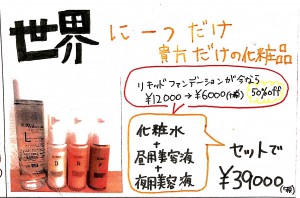 世界に一つだけ
貴方だけの化粧品
リキッドファンデーションが今なら
¥12000→¥6000(税抜) 50%off
化粧水
+
昼用美容液
+
夜用美容液
セットで
¥39000(税抜)
L
D N F